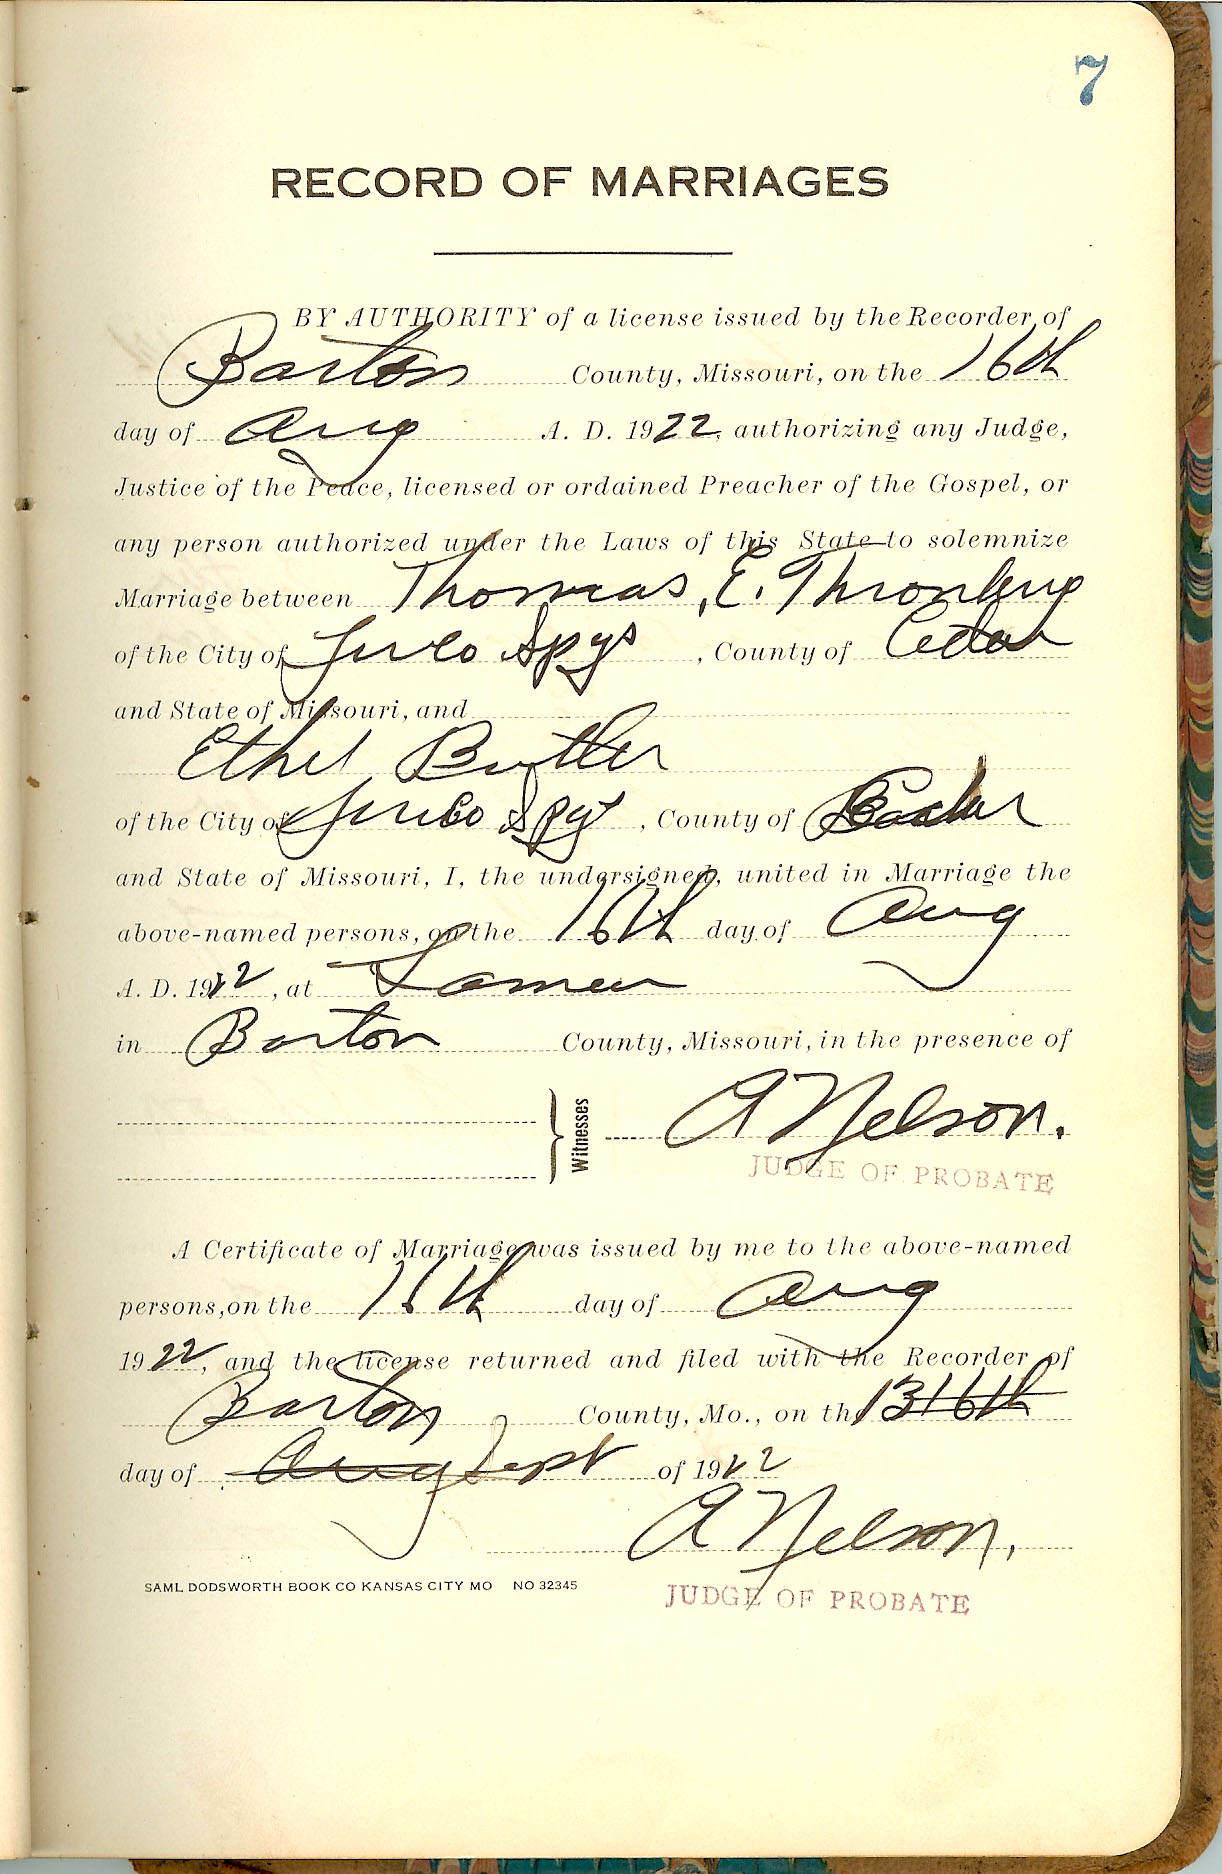 7
RECORD OF MARRIAGES
BY AUTHORITY of a license issued by the Recorder of
Barton County, Missouri, on the 16th
day of Aug A. D. 1922, authorizing any Judge,
Justice of the Peace, licensed or ordained Preacher of the Gospel, or
any person authorized under the Laws of this State to solemnize
Marriage between Thomas, E.
of the City of Spgs, County of Cedar
and State of Missouri, and
Ethel Butler
of the City of Spgs, County of Cedar
and State of Missouri, I, the undersigned, united in Marriage the
above-named persons, on the 16th day of Aug
A. D. 1922, at Lamar
in Barton County, Missouri, in the presence of
Witnesses A Nelson.
JUDGE OF PROBATE
A Certificate of Marriage was issued by me to the above-named
persons, on the 16th day of Aug
1922, and the license returned and filed with the Recorder of
Barton County, Mo., on the 13 16th
day of Aug Sept of 1922
A Nelson.
SAML DODSWORTH BOOK CO KANSAS CITY MO NO 32345
JUDGE OF PROBATE